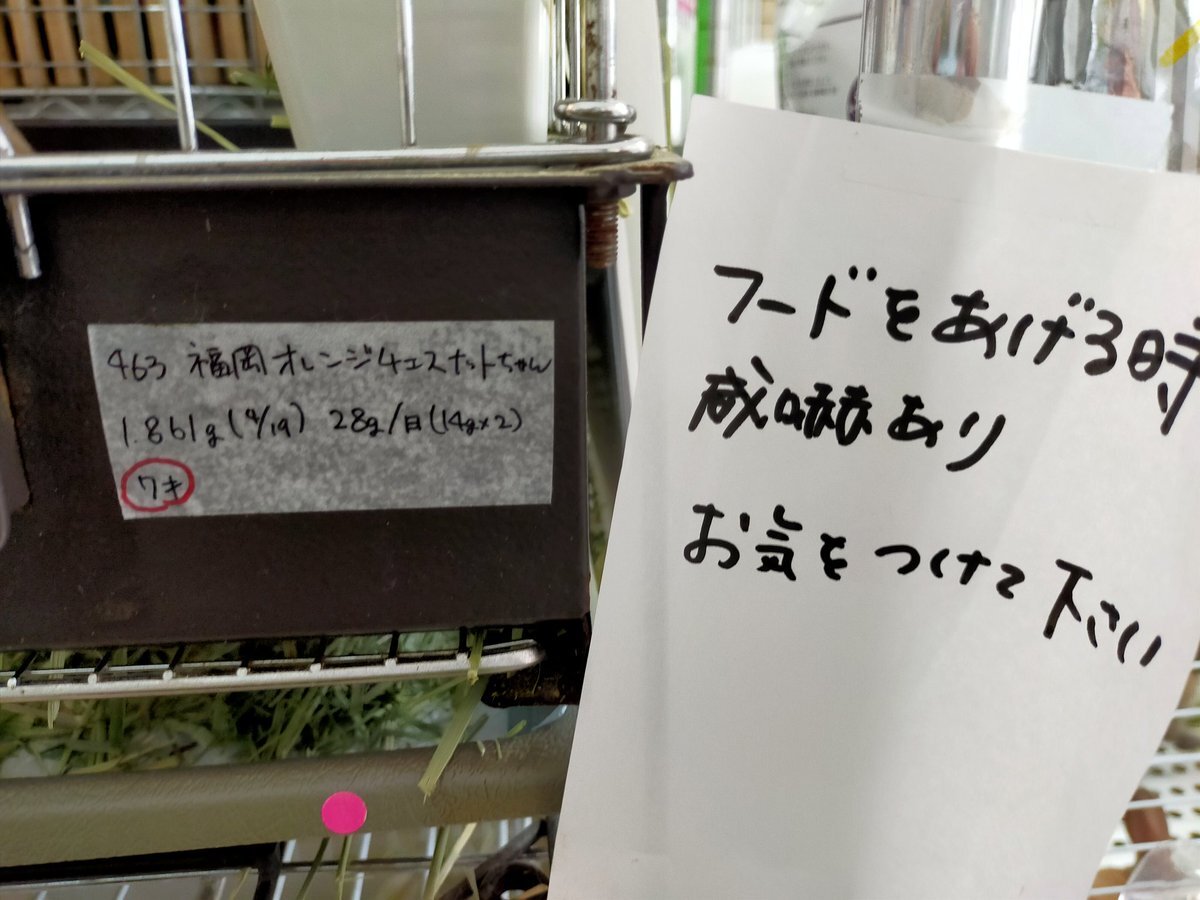 463 福岡オレンジチェスナットちゃん
1.861g(4/19) 28g/日(14g×2)
フードをあげる時
威嚇あり
お気をつけて下さい